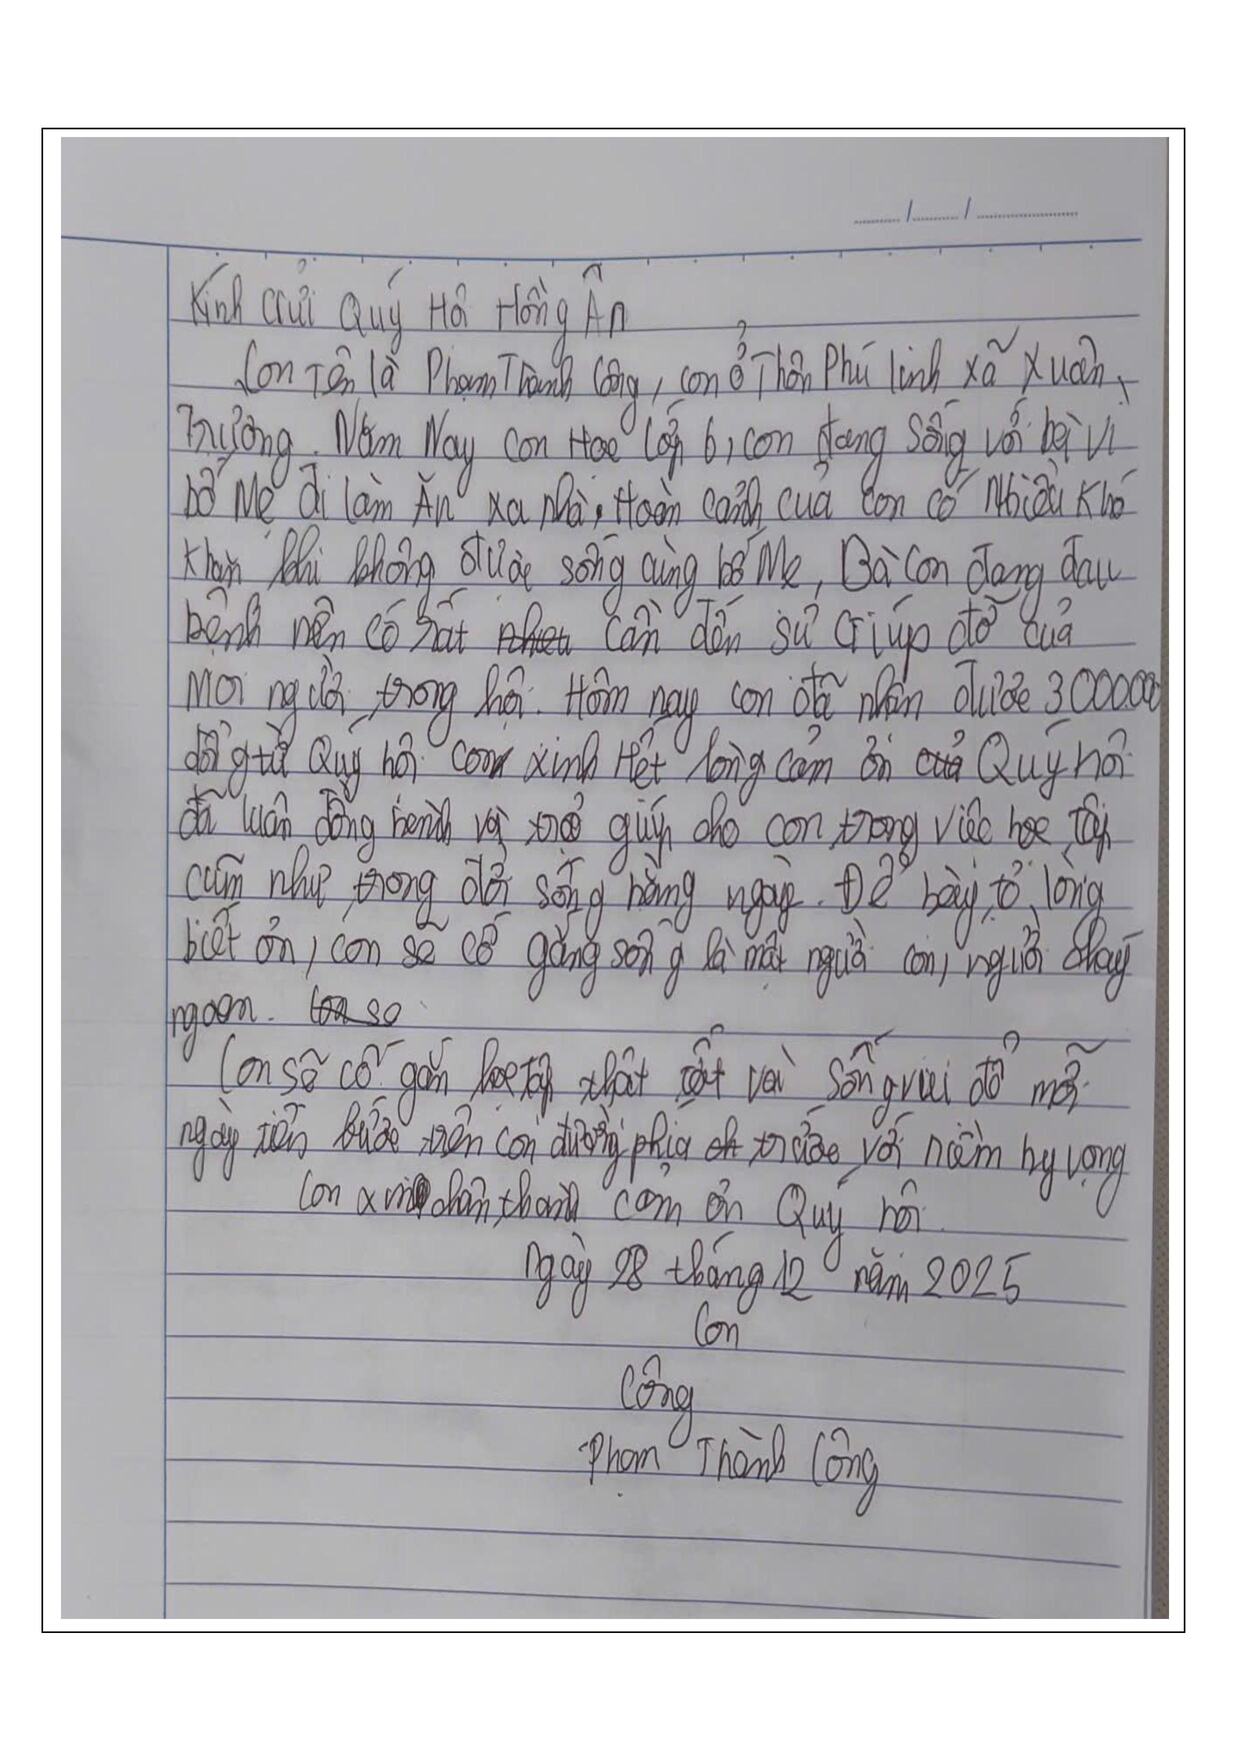 Kính Gửi Quý Hội Hồng Ân
Con Tên là Phạm Thành Công, con ở Thôn Phú linh xã Xuân
Trường. Năm Nay con Học lớp 6, con đang sống với bà vì
bố Mẹ đi làm Ăn xa nhà. Hoàn cảnh của con có Nhiều Khó
khăn khi không được sống cùng bố Mẹ, Bà con đang đau
bệnh nên có rất nhiều cần đến sự Giúp đỡ của
mọi người trong hội. Hôm nay con đã nhận được 300000
đồng từ Quý hội con xinh Hết lòng cảm ơn của Quý hội
đã luôn đồng hành và trợ giúp cho con trong việc học tập
cũng như trong đời sống hằng ngày. Để bày tỏ lòng
biết ơn, con sẽ cố gắng sống là một người con, người cháy
ngoan. Con sẽ
Con sẽ cố gắn học tập thật tốt và sống vui để mỗi
ngày tiến bước trên con đường phía ch trước với niềm hy vọng
Con xin chân thành cảm ơn Quý hội.
Ngày 28 tháng 12 năm 2025
Con
Công
Phạm Thành Công